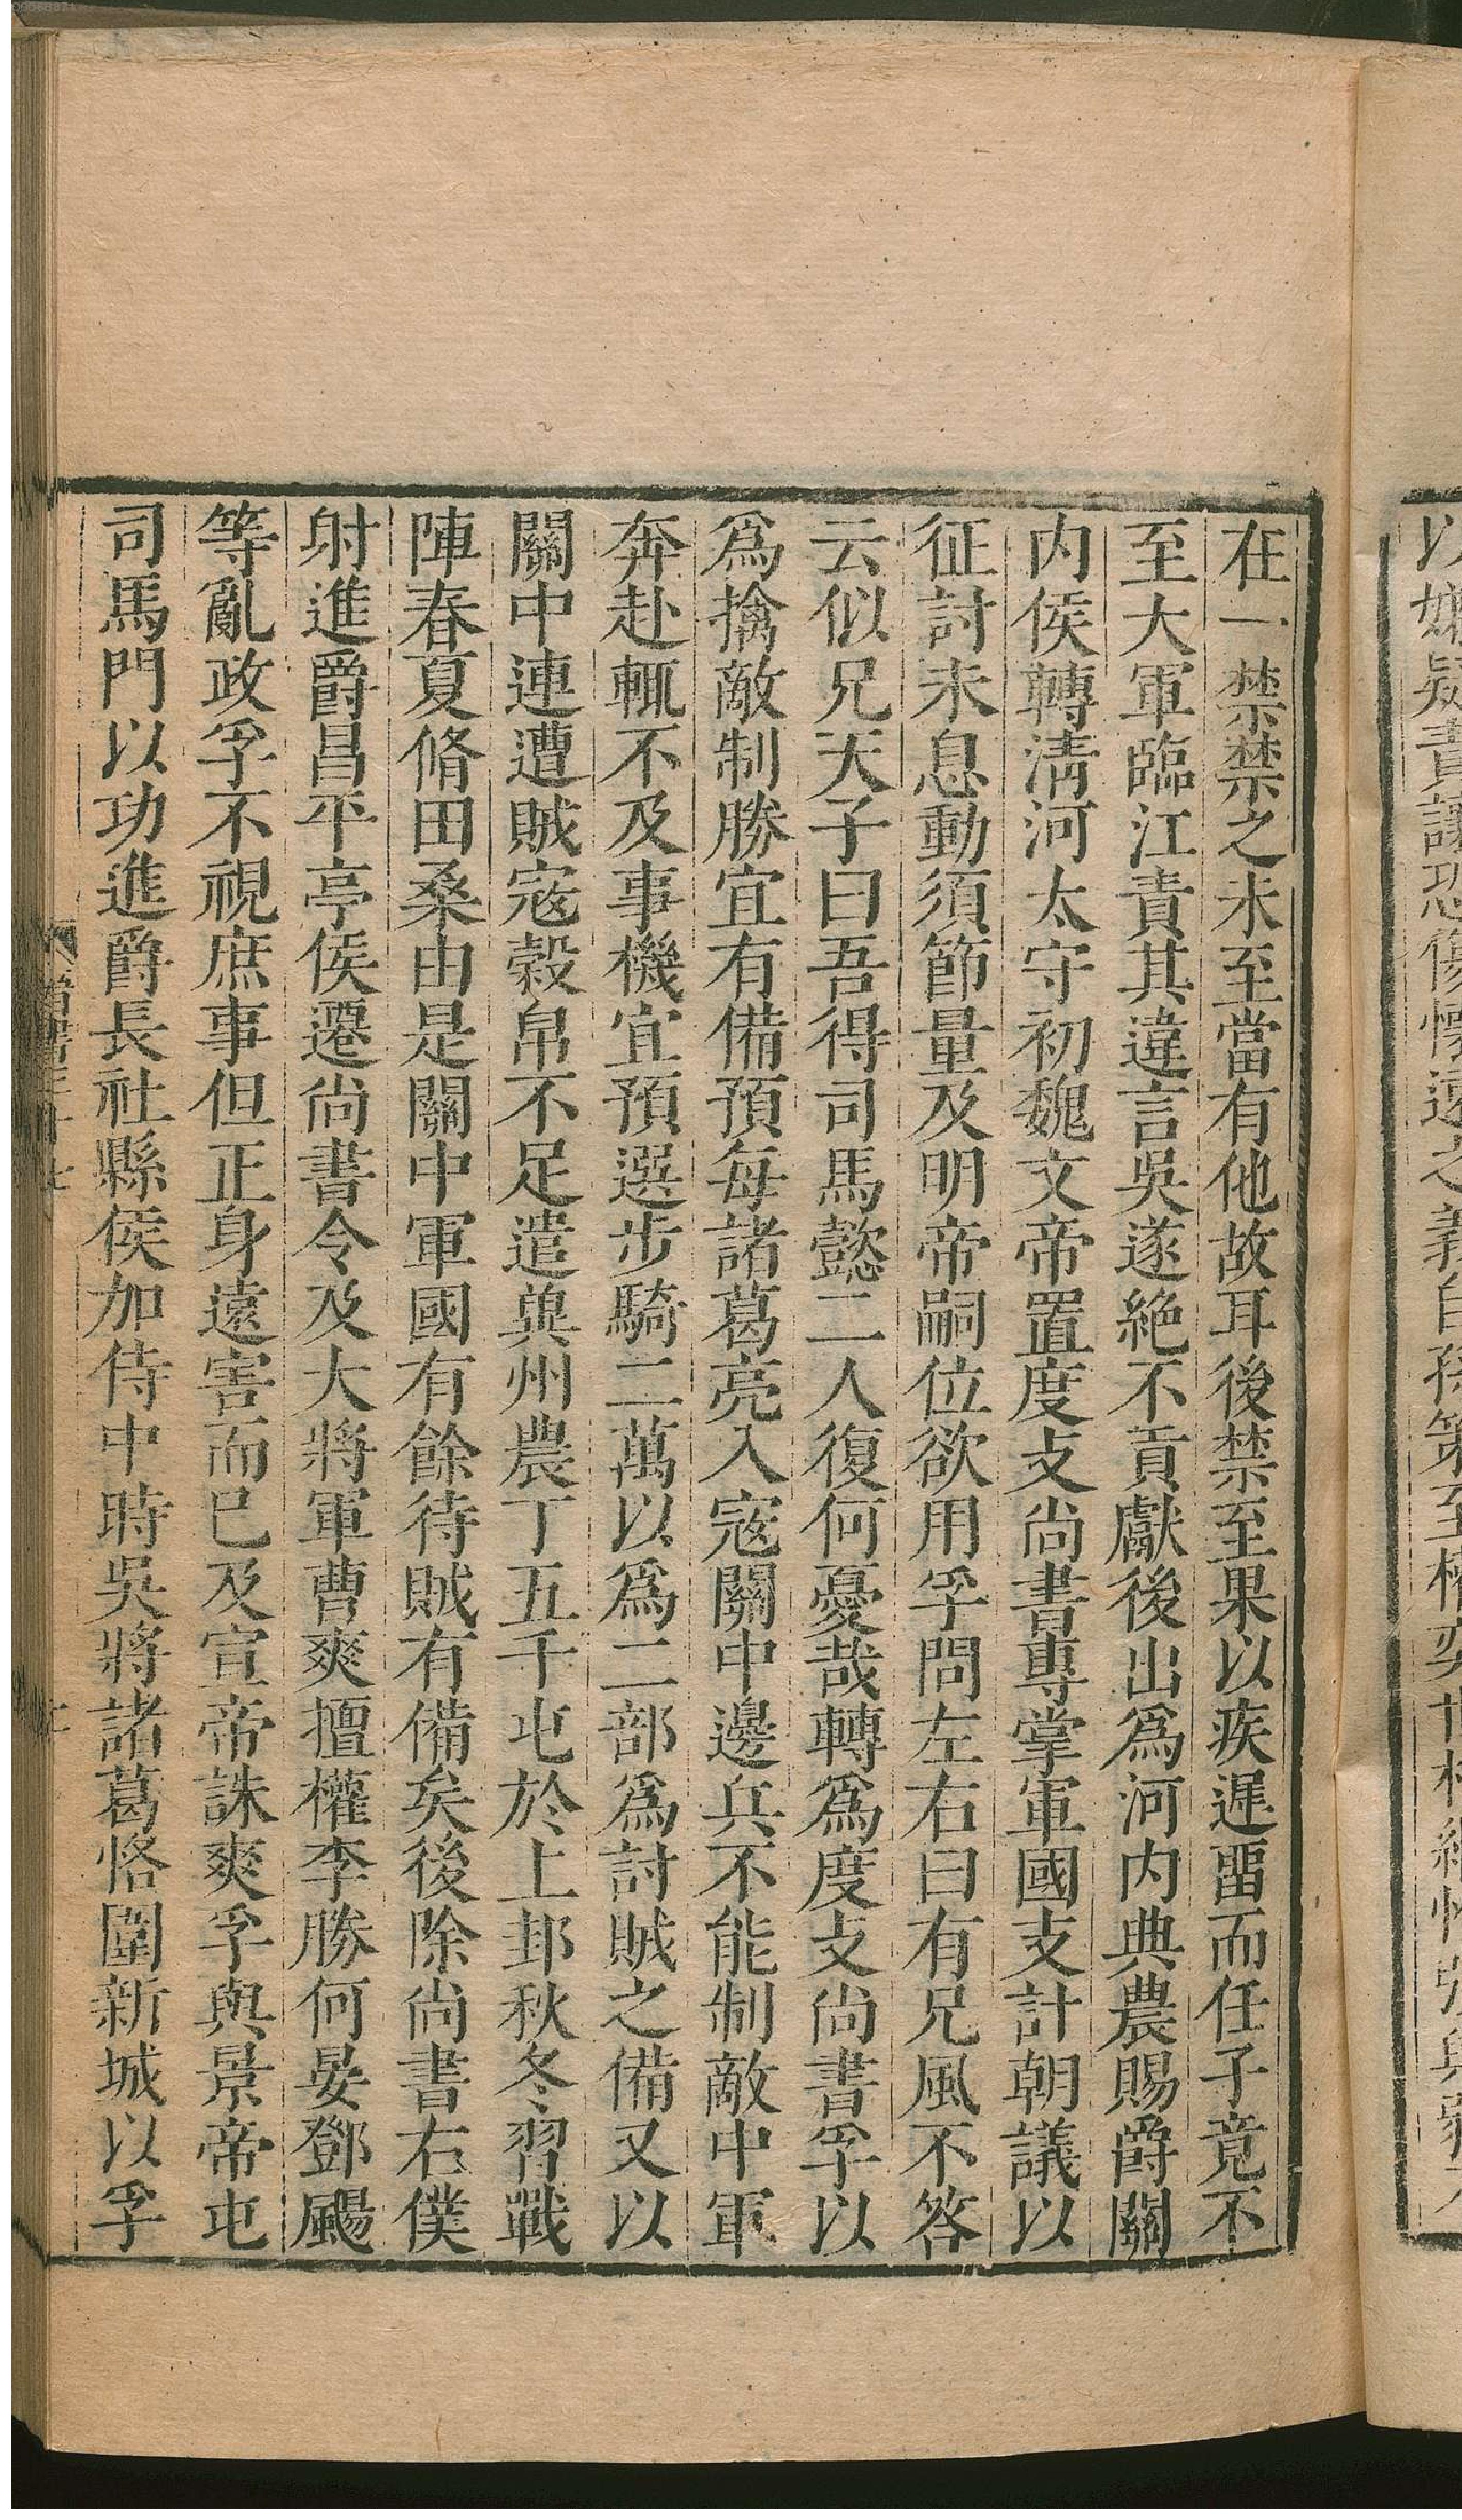 在一禁禁之未至當有他故耳後禁至果以疾遲畱而任子竟不
至大軍臨江責其違言吳遂絶不貢獻後出爲河内典農賜爵關
内侯轉淸河太守初魏文帝置度支尚書專掌軍國支計朝議以
征討未息動須節量及明帝嗣位欲用孚問左右曰有兄風不答
云似兄天子曰吾得司馬懿二人復何憂哉轉爲度支尚書孚以
爲擒敵制勝宜有備預每諸葛亮入寇關中邊兵不能制敵中軍
奔赴輒不及事機宜預選步騎二萬以爲二部爲討賊之備又以
關中連遭賊寇穀帛不足遣兾州農丁五千屯於上邽秋冬習戰
陣春夏脩田桑由是關中軍國有餘待賊有備矣後除尚書右僕
射進爵昌平亭侯遷尚書令及大將軍曹爽擅權李勝何晏鄧颺
等亂政孚不視庶事但正身遠害而已及宣帝誅爽孚與景帝屯
司馬門以功進爵長社縣侯加侍中時吳將諸葛恪圍新城以孚